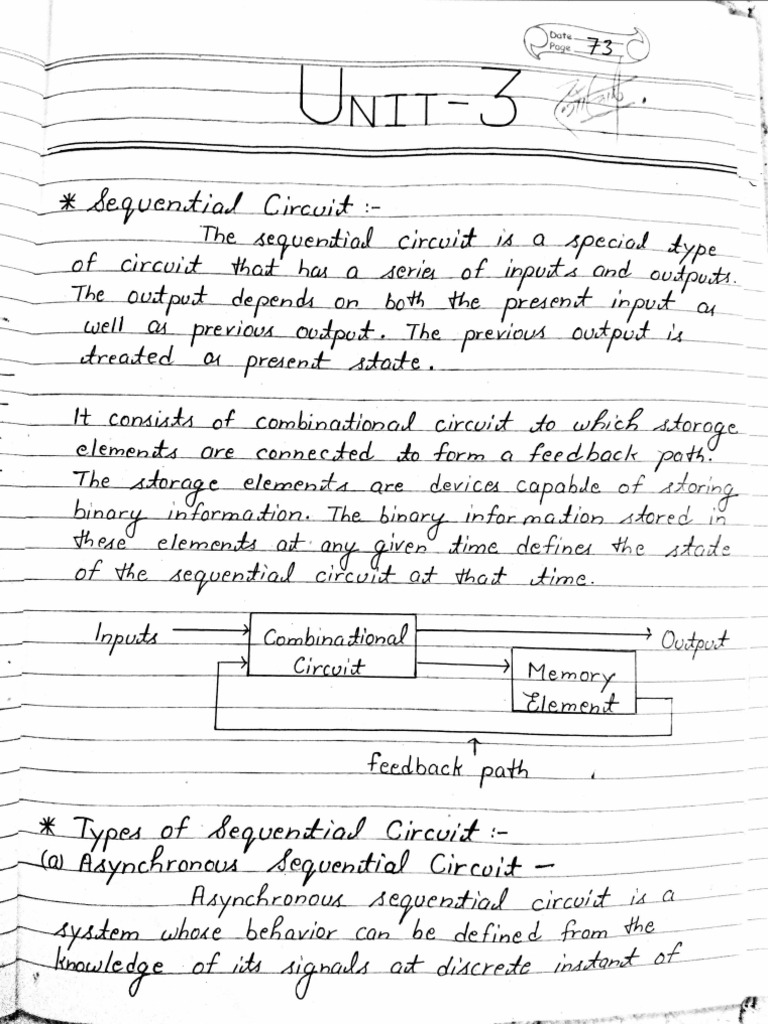 Date
Page 73
UNIT-3
* Sequential Circuit :-
The sequential circuit is a special type
of circuit that has a series of inputs and outputs.
The output depends on both the present input as
well as previous output. The previous output is
treated as present state.
It consists of combinational circuit to which storage
elements are connected to form a feedback path.
The storage elements are devices capable of storing
binary information. The binary information stored in
these elements at any given time defines the state
of the sequential circuit at that time.
Inputs
Combinational
Circuit
Output
Memory
Element
feedback path
* Types of Sequential Circuit :-
(a) Asynchronous Sequential Circuit -
Asynchronous sequential circuit is a
system whose behavior can be defined from the
knowledge of its signals at discrete instant of